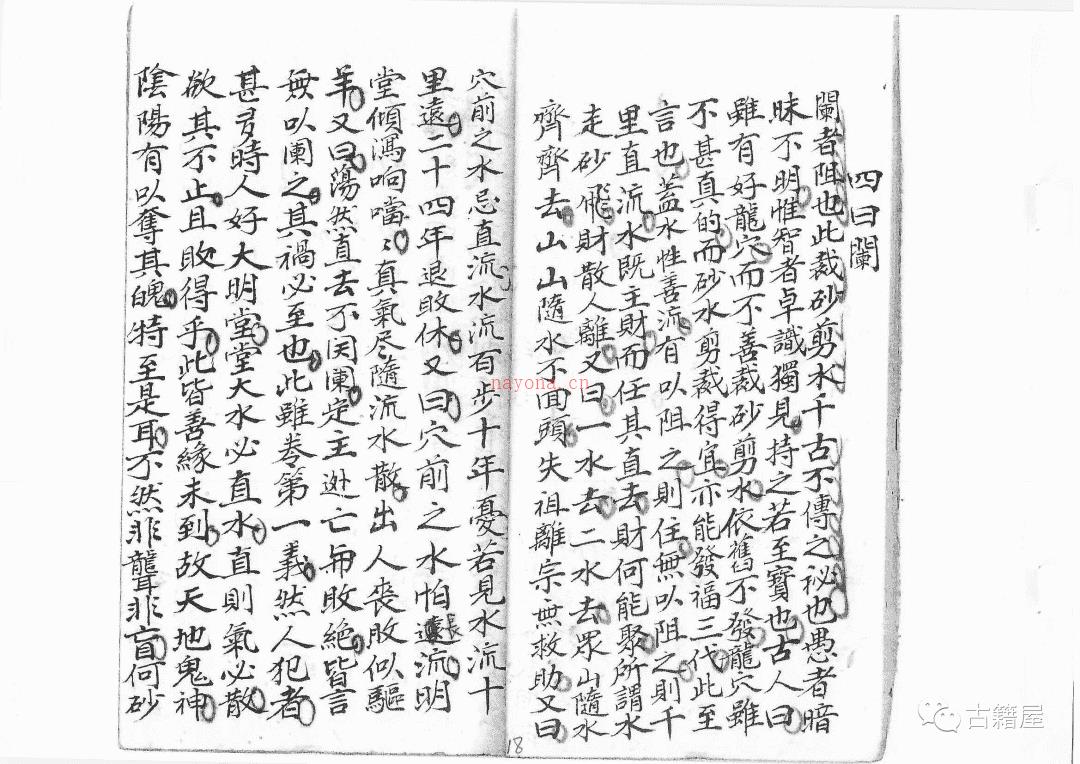 四曰闌
闌者阻也此裁砂剪水千古不傳之祕也愚者暗
昧不明惟智者卓識獨見持之若至寶也古人曰
雖有好龍穴而不善裁砂剪水依舊不發龍穴雖
不甚真的而砂水剪裁得宜亦能發福三代此至
言也蓋水性善流有以阻之則住無以阻之則千
里直流水既主財而任其直去財何能聚所謂水
走砂飛財散人離又曰一水去二水去眾山隨水
齊齊去山山隨水不面頭失祖離宗無救助又曰
穴前之水忌直流水流百步十年憂若見水流十
里遠二十四年退敗休又曰穴前之水怕長流明
堂傾瀉响噹噹真氣尽隨流水散出人喪敗似驅
羊又曰蕩然直去不関闌定主逃亡而敗絕皆言
無以闌之其禍必至也此雖卷第一義然人犯者
甚多時人好大明堂堂大水必直水直則氣必散
欲其不止且敗得乎此皆善緣未到故天地鬼神
陰陽有以奪其魄特至是耳不然非聾非盲何砂
18
nayona.cn
古籍屋